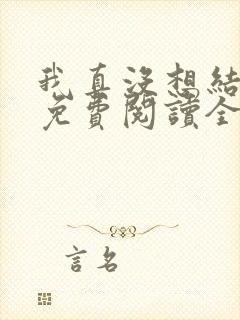 我真沒想結
免費閱讀全
言名